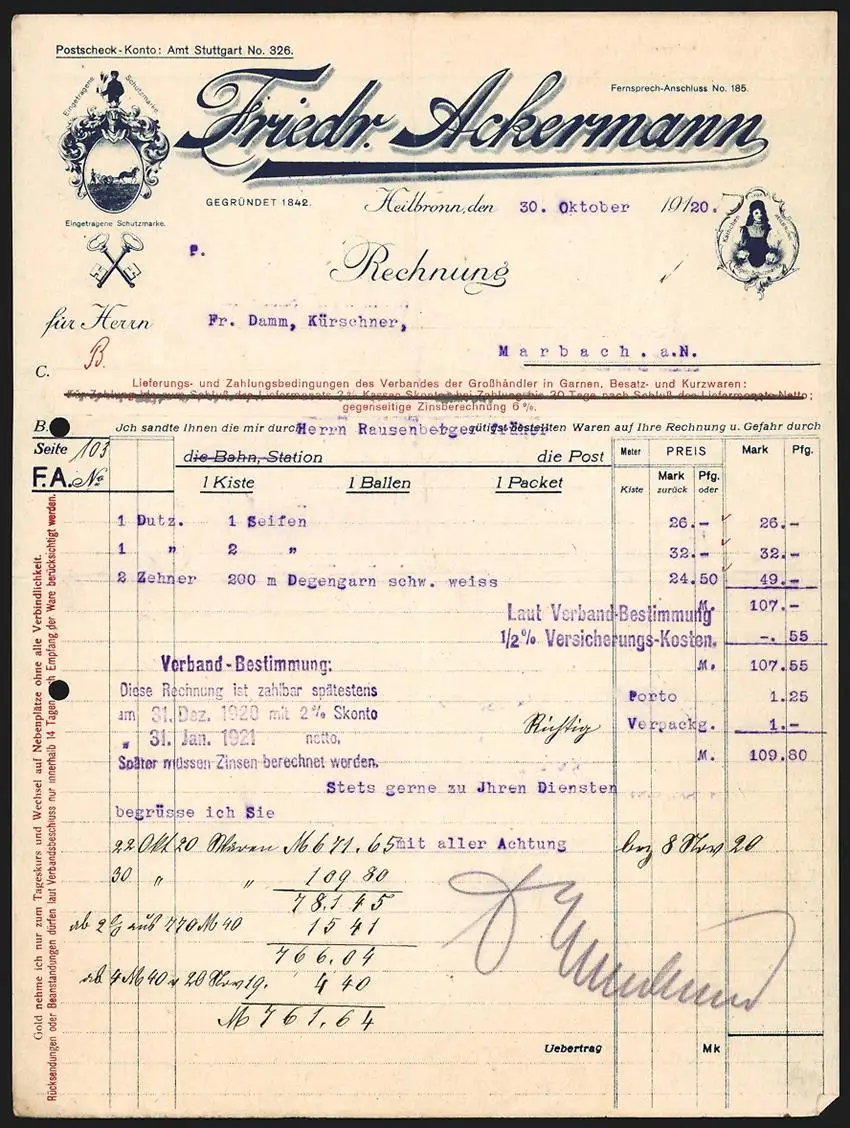 Postscheck-Konto: Amt Stuttgart No. 326.
Fernsprech-Anschluss No. 185.
Eingetragene Schutzmarke.
Friedr. Ackermann
GEGRÜNDET 1842.
Heilbronn, den 30. Oktober 19120.
Eingetragene Schutzmarke.
P.
Rechnung
für Herrn
Fr. Damm, Kürschner,
Marbach. a.N.
B.
C.
Lieferungs- und Zahlungsbedingungen des Verbandes der Großhändler in Garnen, Besatz- und Kurzwaren:
Für Zahlung bis zum Schluß des Liefermonats 2% Kassen Skonto bei Zahlung bis 30 Tage nach Schluß des Liefermonats Netto;
gegenseitige Zinsberechnung 6%.
B.
Jch sandte Ihnen die mir durch Herrn Rausenberger gütigst bestellten Waren auf Ihre Rechnung u. Gefahr durch
Seite 103
die Bahn, Station die Post
Meter PREIS Mark Pfg.
F.A. No
1 Kiste 1 Ballen 1 Packet
Kiste Mark zurück Pfg. oder
1 Dutz. 1 Seifen 26.- 26.-
1 " 2 " 32.- 32.-
2 Zehner 200 m Degengarn schw. weiss 24.50 49.-
M. 107.-
Laut Verband-Bestimmung
1/2% Versicherungs-Kosten. -. 55
M. 107.55
Verband-Bestimmung:
Diese Rechnung ist zahlbar spätestens
am 31. Dez. 1920 mit 2% Skonto
" 31. Jan. 1921 netto.
Später müssen Zinsen berechnet werden.
Porto 1.25
Richtig
Verpackg. 1.-
M. 109.80
Stets gerne zu Jhren Diensten
begrüsse ich Sie
mit aller Achtung
22 Okt 20 Waren M 671.65
bez 8 Nov 20
30 " " 109 80
781 45
ab 2% aus 770 M 40 15 41
766.04
ab 4 M 40 v 20 Nov 19. 4 40
M 761.64
Uebertrag Mk
Gold nehme ich nur zum Tageskurs und Wechsel auf Nebenplätze ohne alle Verbindlichkeit.
Rücksendungen oder Beanstandungen dürfen laut Verbandsbeschluss nur innerhalb 14 Tagen nach Empfang der Ware berücksichtigt werden.